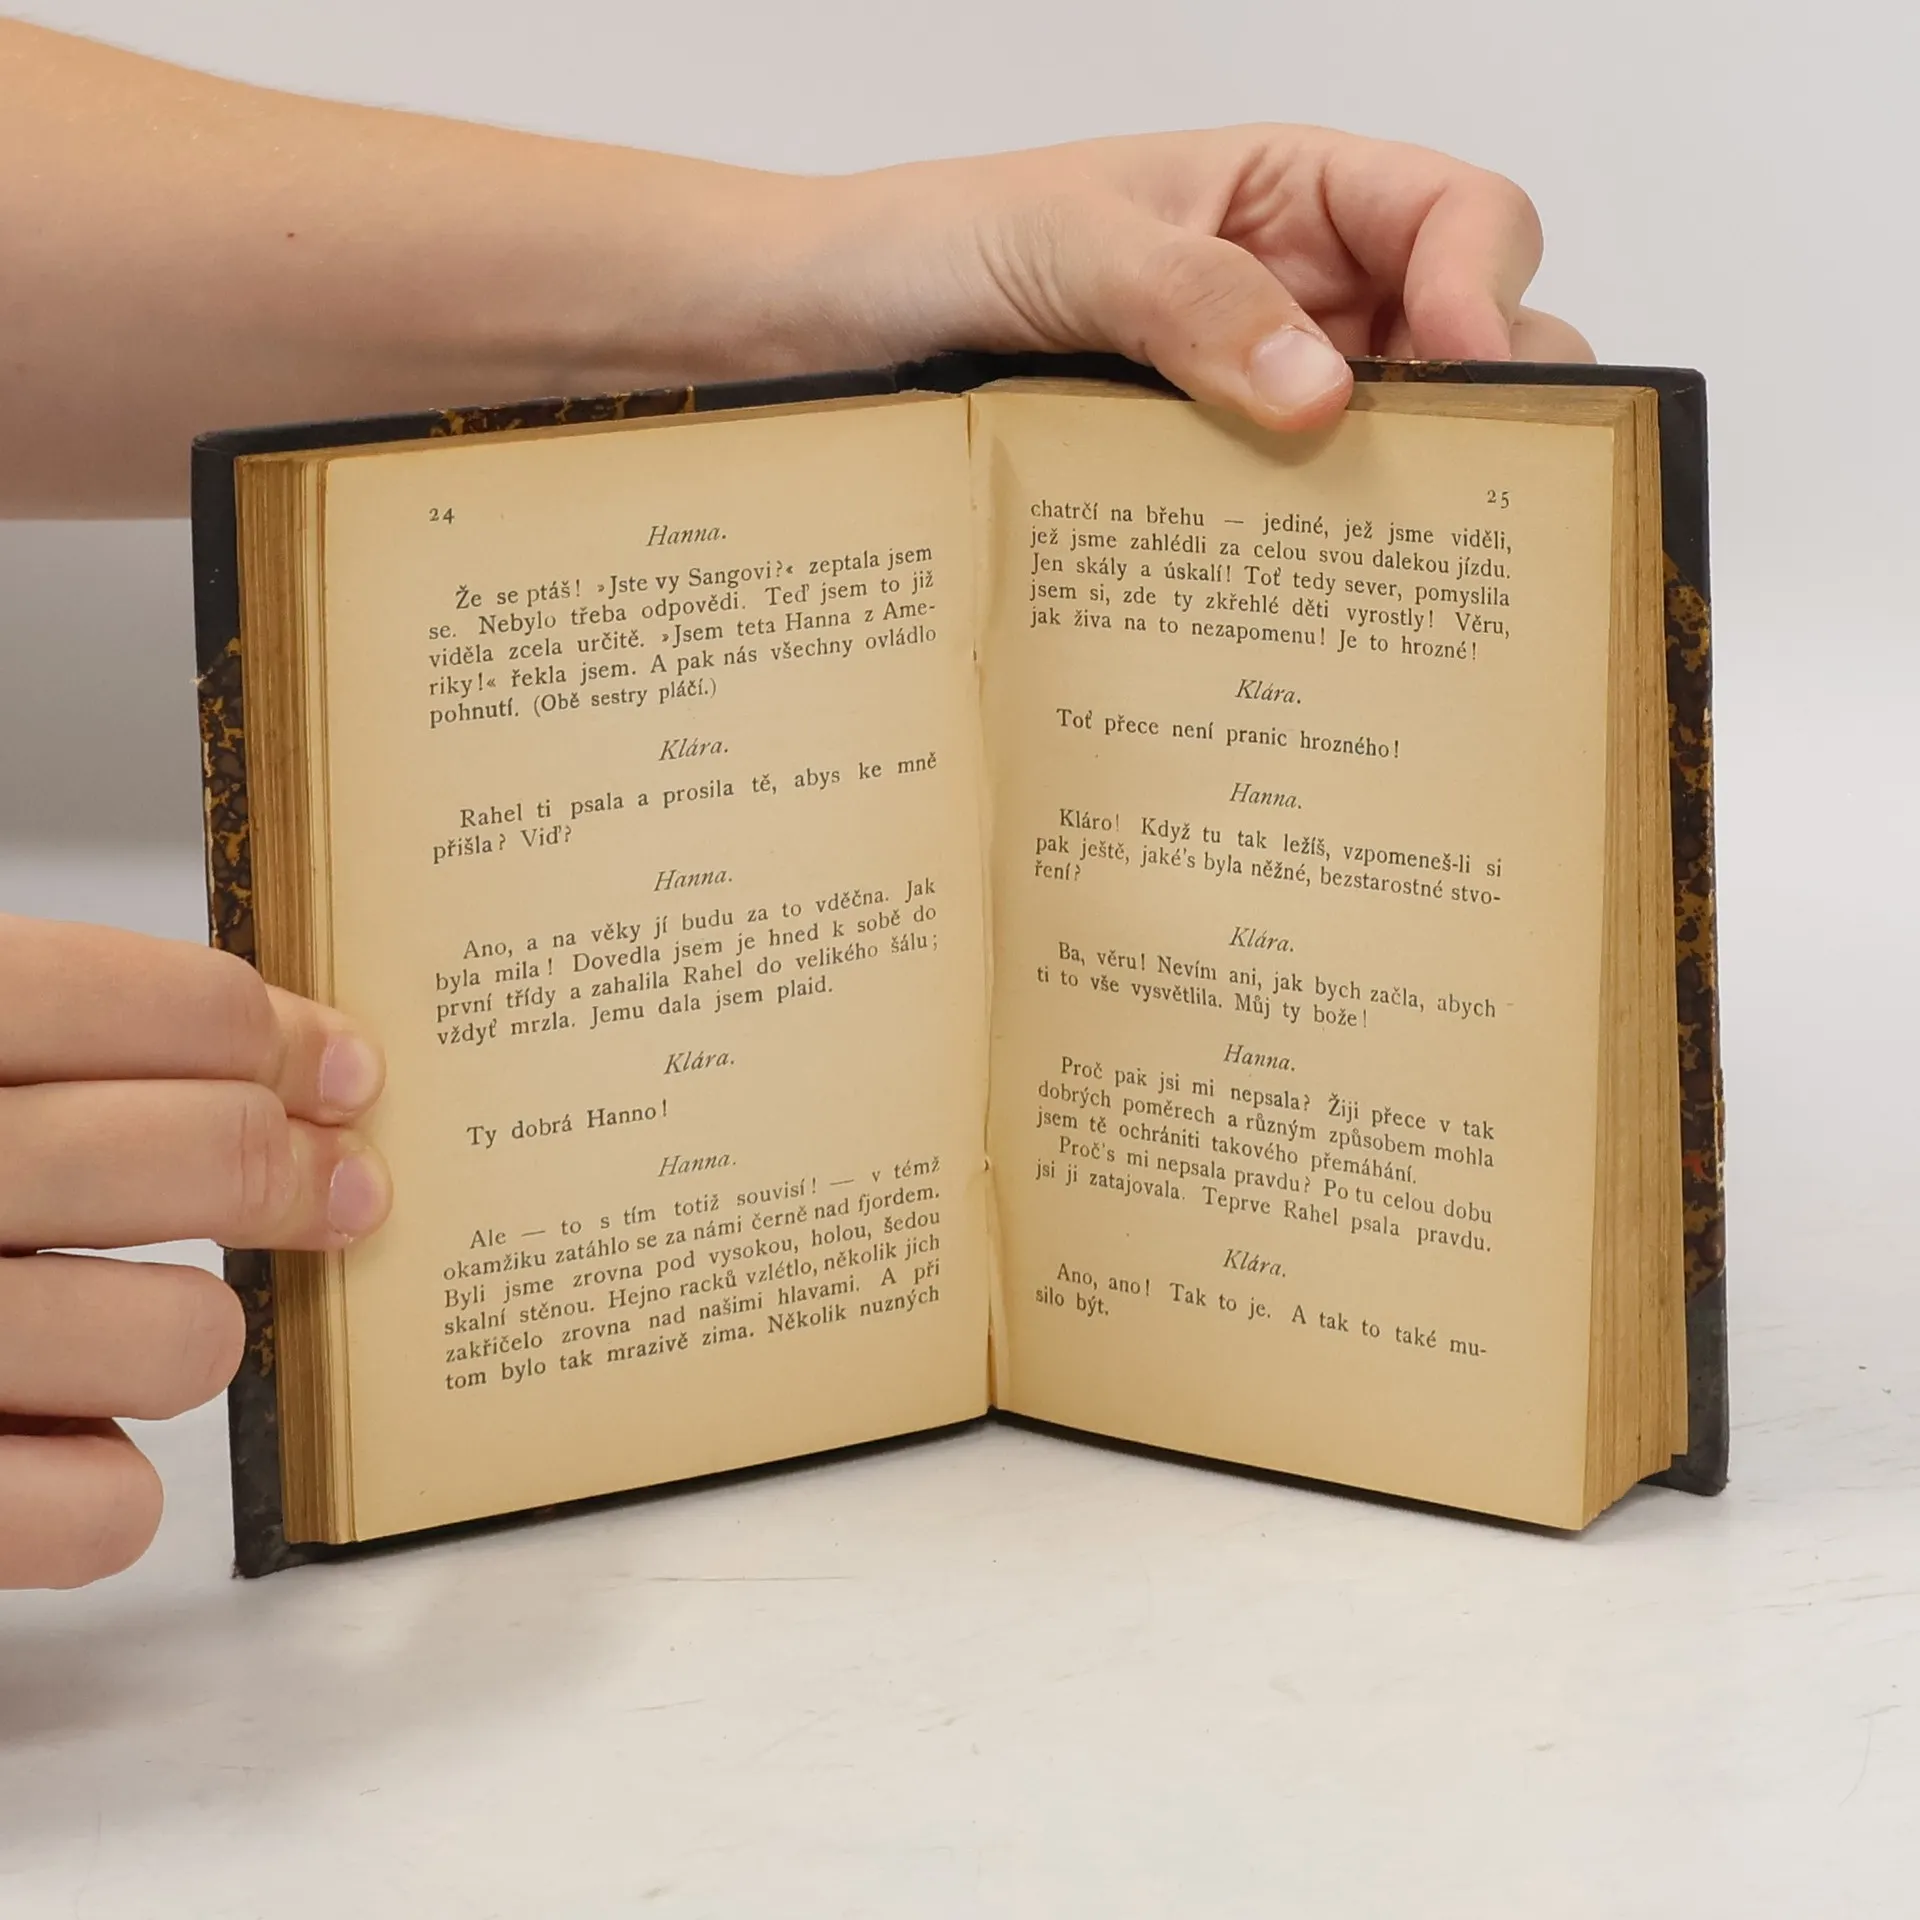 24
Hanna.
Že se ptáš! »Jste vy Sangovi?« zeptala jsem
se. Nebylo třeba odpovědi. Teď jsem to již
viděla zcela určitě. »Jsem teta Hanna z Ame-
riky!« řekla jsem. A pak nás všechny ovládlo
pohnutí. (Obě sestry pláčí.)
Klára.
Rahel ti psala a prosila tě, abys ke mně
přišla? Viď?
Hanna.
Ano, a na věky jí budu za to vděčna. Jak
byla mila! Dovedla jsem je hned k sobě do
první třídy a zahalila Rahel do velikého šálu;
vždyť mrzla. Jemu dala jsem plaid.
Klára.
Ty dobrá Hanno!
Hanna.
Ale — to s tím totiž souvisí! — v témž
okamžiku zatáhlo se za námi černě nad fjordem.
Byli jsme zrovna pod vysokou, holou, šedou
skalní stěnou. Hejno racků vzlétlo, několik jich
zakřičelo zrovna nad našimi hlavami. A při
tom bylo tak mrazivě zima. Několik nuzných
25
chatrčí na břehu — jediné, jež jsme viděli,
jež jsme zahlédli za celou svou dalekou jízdu.
Jen skály a úskalí! Toť tedy sever, pomyslila
jsem si, zde ty zkřehlé děti vyrostly! Věru,
jak živa na to nezapomenu! Je to hrozné!
Klára.
Toť přece není pranic hrozného!
Hanna.
Kláro! Když tu tak ležíš, vzpomeneš-li si
pak ještě, jaké's byla něžné, bezstarostné stvo-
ření?
Klára.
Ba, věru! Nevím ani, jak bych začla, abych
ti to vše vysvětlila. Můj ty bože!
Hanna.
Proč pak jsi mi nepsala? Žiji přece v tak
dobrých poměrech a různým způsobem mohla
jsem tě ochrániti takového přemáhání.
Proč's mi nepsala pravdu? Po tu celou dobu
jsi ji zatajovala. Teprve Rahel psala pravdu.
Klára.
Ano, ano! Tak to je. A tak to také mu-
silo být.